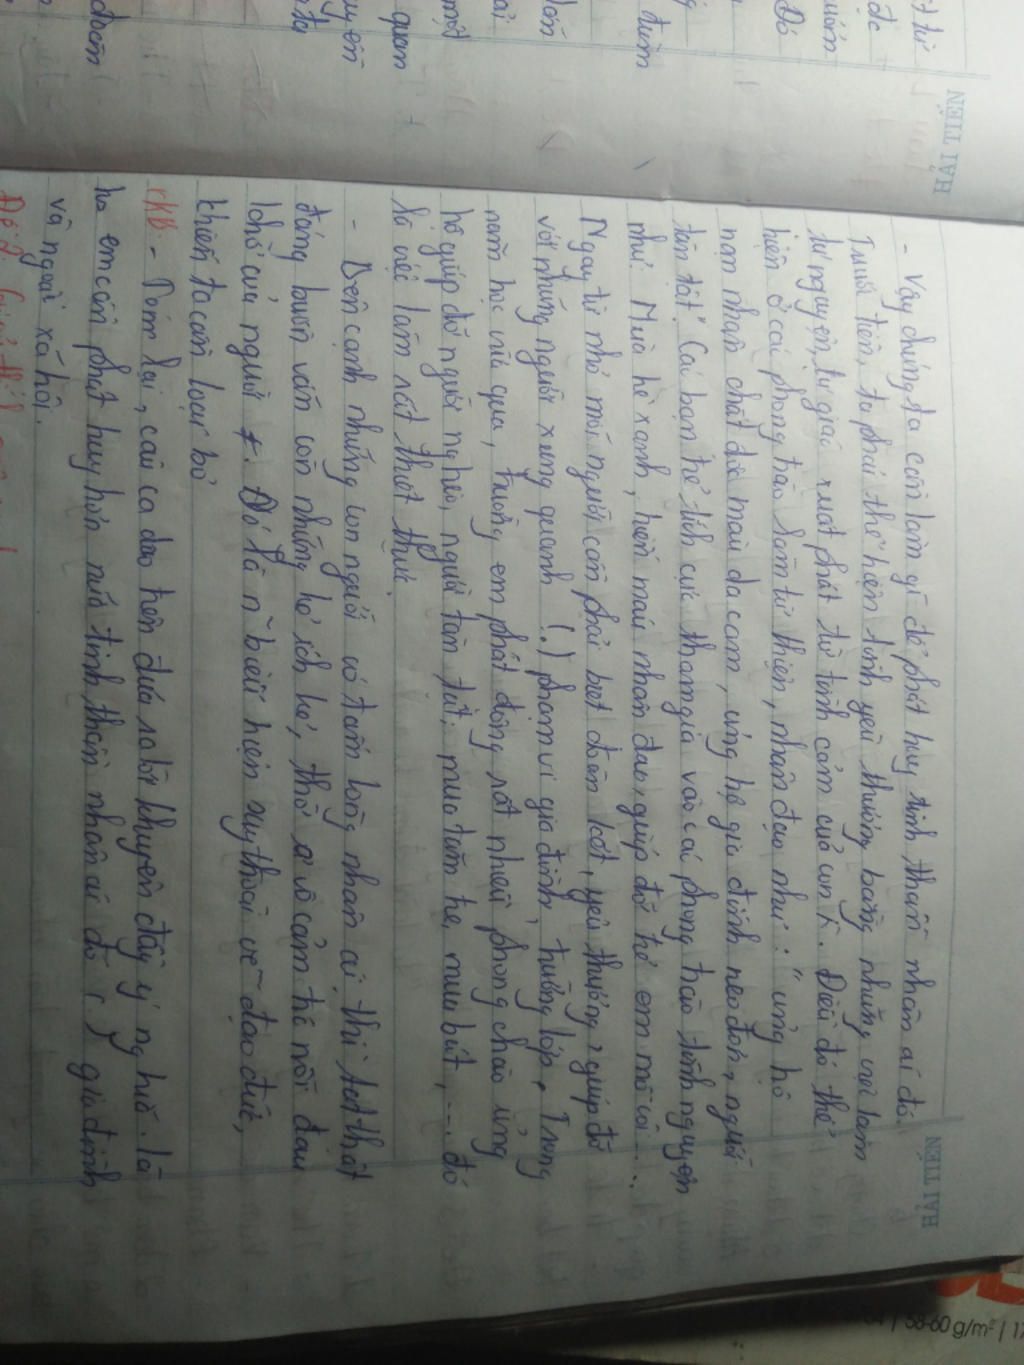 HẢI TIẾN
HẢI TIẾN
- Vậy chúng ta cần làm gì để phát huy tinh thần nhân ái đó.
Trước tiên, ta phải thể hiện tình yêu thương bằng những việc làm
tự nguyện, tự giác xuất phát từ tình cảm của con . Điều đó thể
hiện ở các phong trào làm từ thiện, nhân đạo như : "ủng hộ
nạn nhân chất độc màu da cam, ủng hộ gia đình neo đơn, người
tàn tật". Các bạn trẻ tích cực tham gia vào các phong trào tình nguyện
như: Mùa hè xanh, hiến máu nhân đạo, giúp đỡ trẻ em mồ côi ...
Ngay từ nhỏ mỗi người cần phải biết đoàn kết, yêu thương, giúp đỡ
với những người xung quanh (.) phạm vi gia đình, trường lớp. Trong
năm học vừa qua, trường em phát động rất nhiều phong chào ủng
hộ giúp đỡ người nghèo, người tàn tật, mua tăm tre, mua bút, ... đó
là việc làm rất thiết thực.
- Bên cạnh những con người có tấm lòng nhân ái thì thật
đáng buồn vẫn còn những kẻ ích kỉ, thờ ơ vô cảm trc nỗi đau
khổ của người #. Đó là n~ biểu hiện suy thoái về đạo đức,
khiến ta cần loại bỏ
*KB: - Tóm lại, câu ca dao trên đưa ra lời khuyên đầy ý nghĩa. Là
hs em cần phát huy hơn nữa tinh thần nhân ái đó (.) gia đình
và ngoài xã hội.
58-60 g/m² | 17